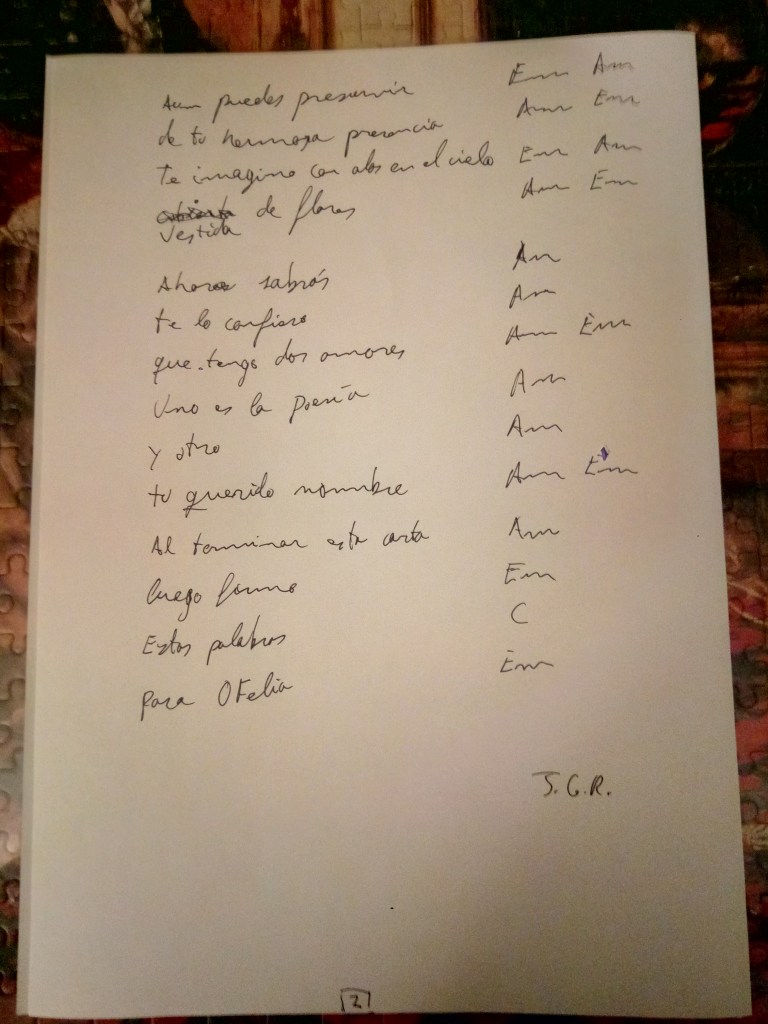 Aun puedes presumir Em Am
de tu hermosa presencia Am Em
te imagino con alas en el cielo Em Am
de flores Am Em
Vestida
Ahora sabrás Am
te lo confieso Am
que tengo dos amores Am Em
Uno es la poesía Am
y otro Am
tu querido nombre Am Em
Al terminar esta carta Am
luego firmo Em
Estas palabras C
Para Ofelia Em
J.G.R.
2